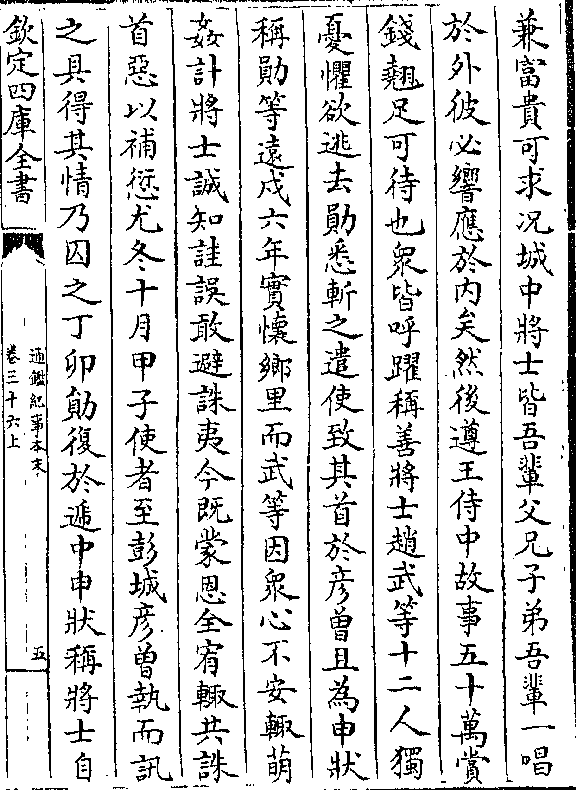 兼富貴可求况城中將士皆吾輩父兄子弟吾輩一唱
於外彼必響應於内矣然後遵王侍中故事五十萬賞
錢翹足可待也衆皆呼躍稱善將士趙武等十二人獨
憂懼欲逃去勛悉斬之遣使致其首於彦曽且為申狀
稱勛等逺戍六年實懷鄉里而武等因衆心不安輙萌
姦計將士誠知詿誤敢避誅夷今既蒙恩全宥輙共誅
首惡以補愆尤冬十月甲子使者至彭城彦曽執而訊
之具得其情乃囚之丁卯勛復於遞中申狀稱將士自
欽定四庫全書
通鑑紀事本末
卷三十六上
五